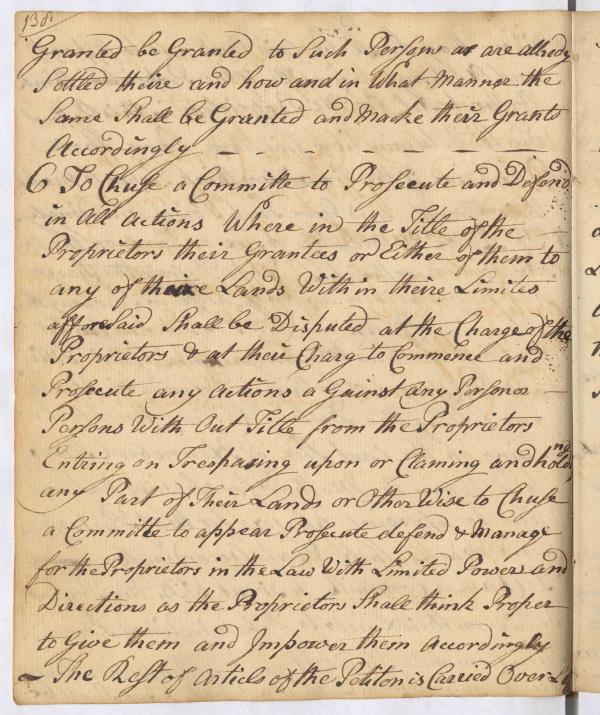 138
Granted be Granted to Such Persons as are allredy
Settled theire and how and in What manner the
Same Shall be Granted and Macke their Grants
Accordingly — — — — — —
6 To Chuse a Committe to Prosecute and Defend
in All Actions Where in the Title of the —
Proprietors their Grantees or Either of them to
any of theire Lands With in theire Limites
afforeSaid Shall be Disputed at the Charge of the
Proprietors & at their Charg to Commence and
Prosecute any actions a Gainst any Person or —
Persons With Out Title from the Proprietors
Entring on Trespasing upon or Claming and holding
any Part of Their Lands or Other Wise to Chuse
a Committe to appear Prosecute defend & Manage
for the Proprietors in the Law With Limited Powers and
Directions as the Proprietors Shall think Proper
to Give them and Impower them Accordingly
— The Rest of Articls of the Petiton is Carried Over